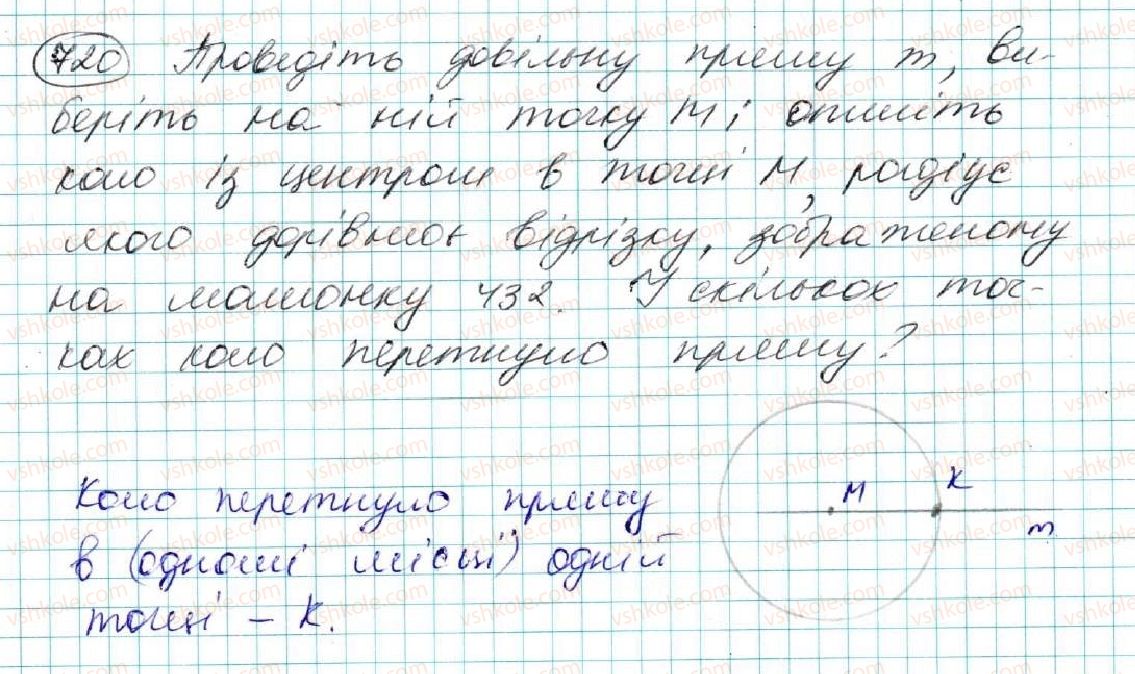 720 Проведіть довільну пряму m, ви-
беріть на ній точку M і опишіть
коло із центром в точці M, радіус
якого дорівнює відрізку, зображеному
на малюнку 432. У скількох точ-
ках коло перетнуло пряму?
M K
m
Коло перетнуло пряму
в (одномі місці) одній
точці – K.